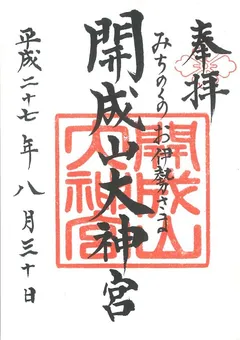 奉拝
みちのくのお伊勢さま
開成山大神宮
開成山
大神宮
平成二十七年八月三十日